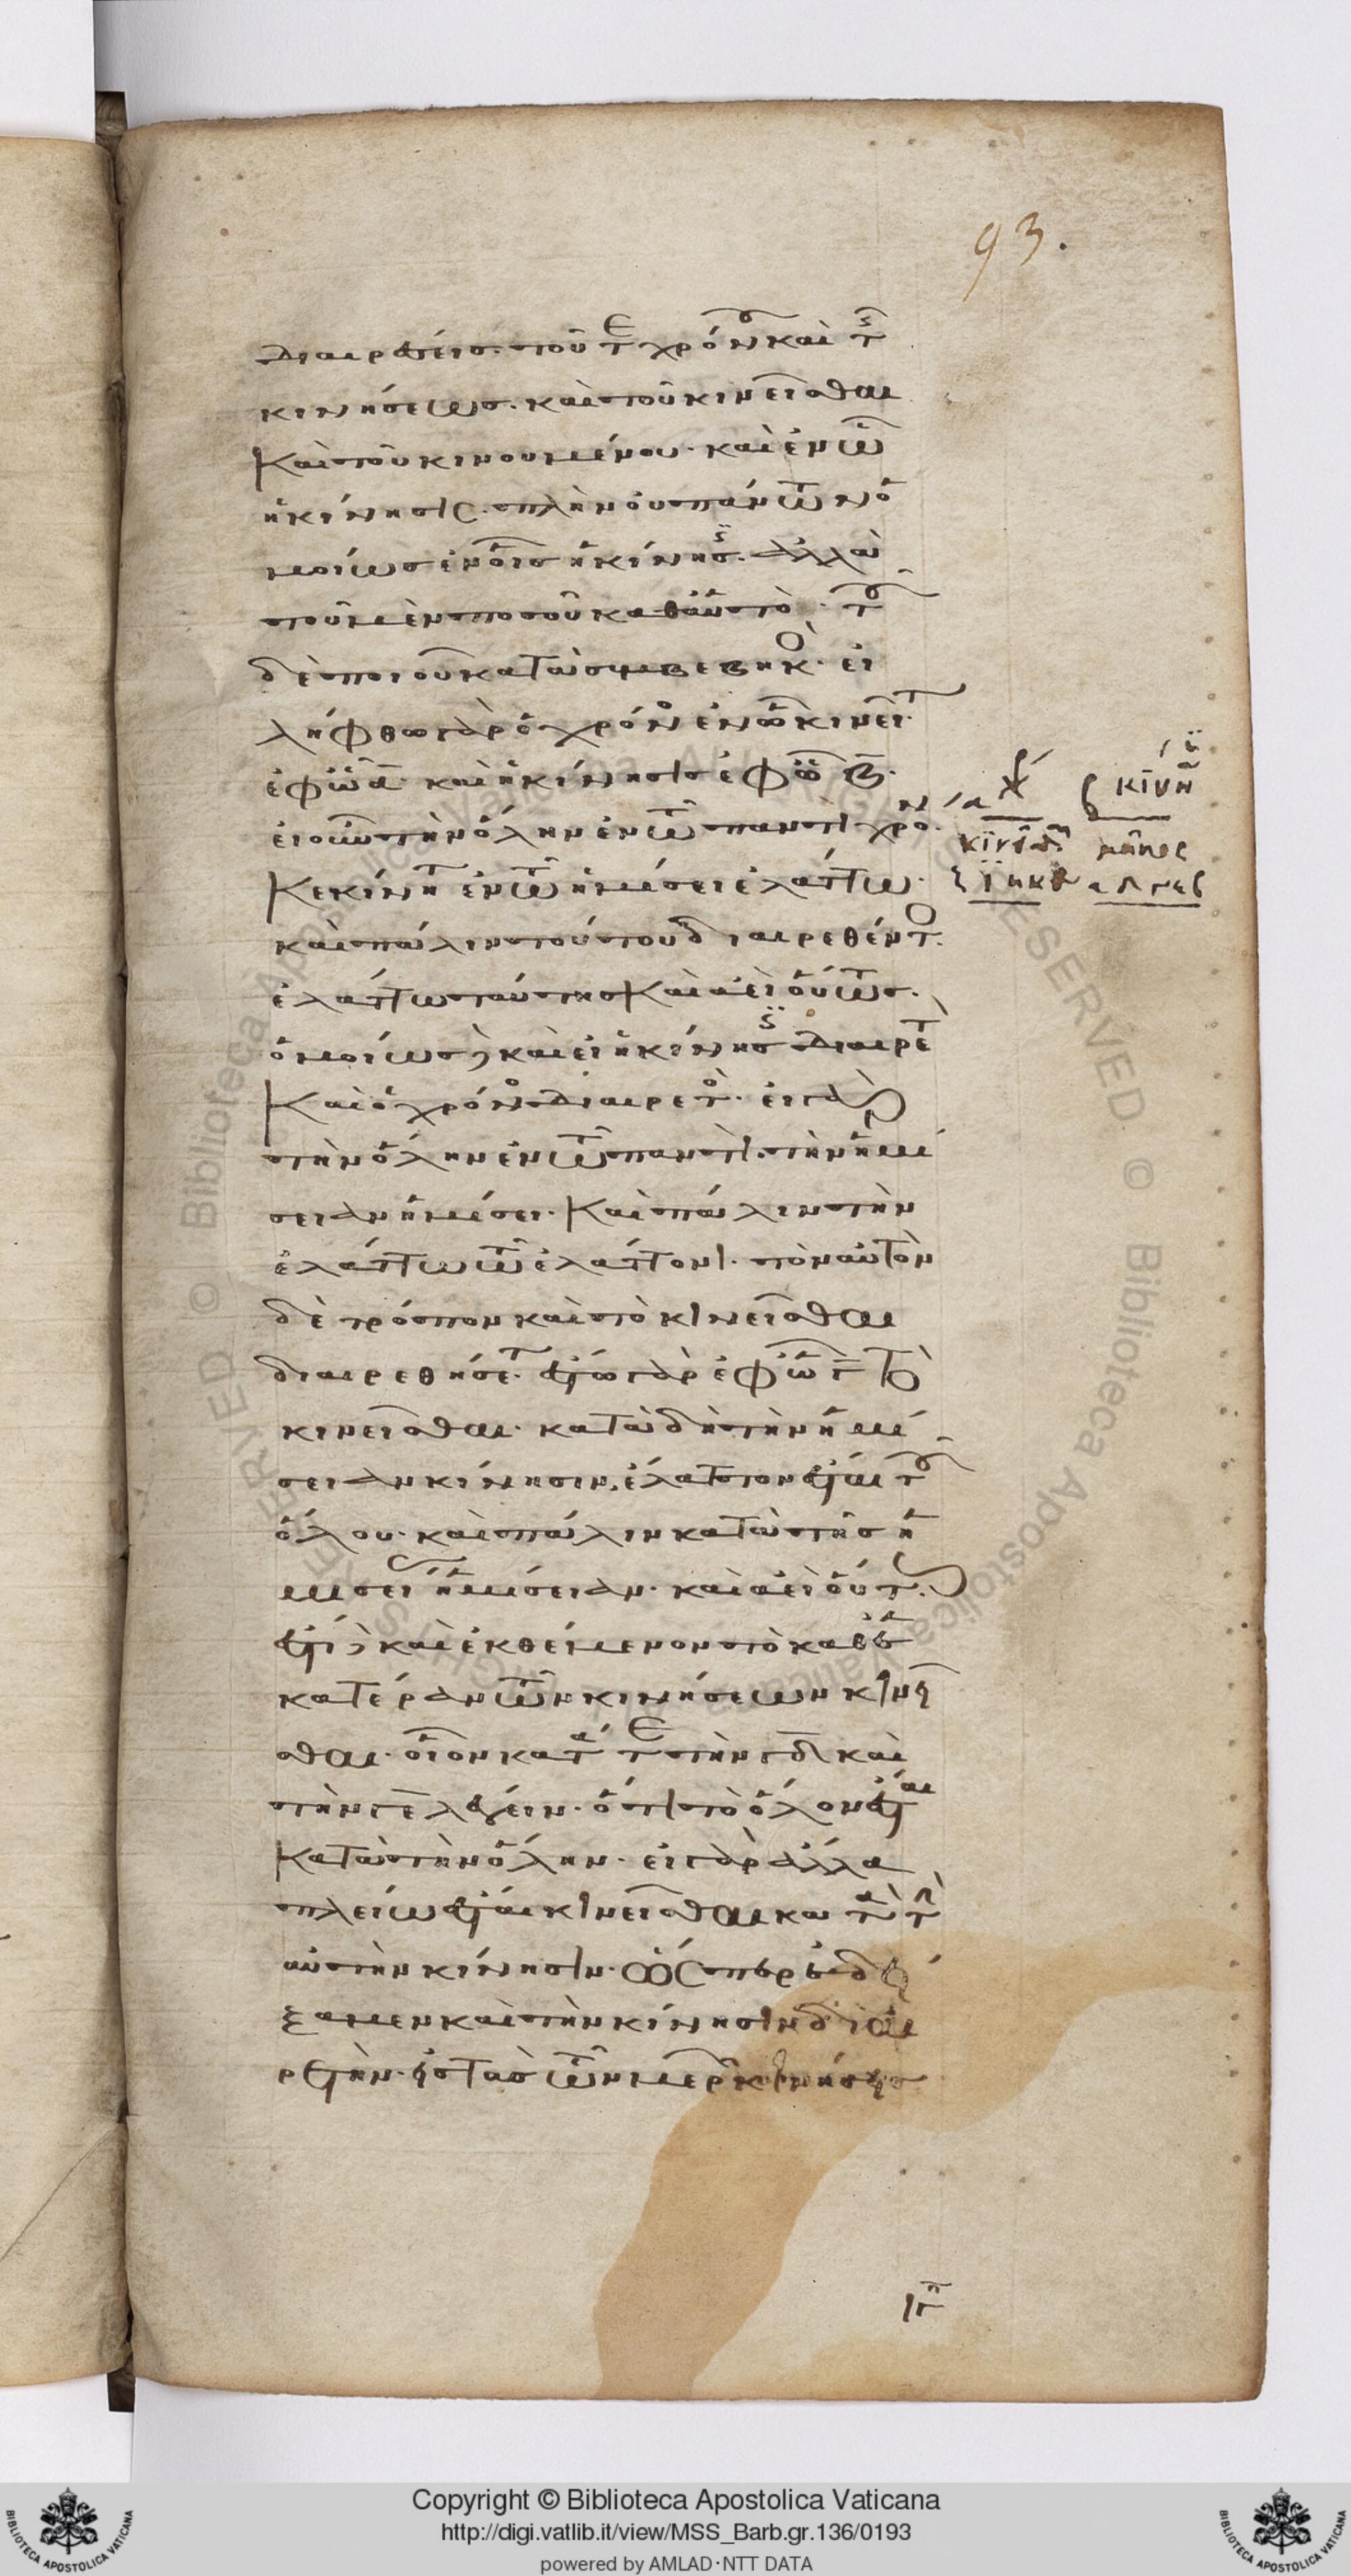 93.
διαιρέσεις τοῦ τε χρόνου καὶ τῆς
κινήσεως. καὶ τοῦ κινεῖσθαι
καὶ τοῦ κινουμένου· καὶ ἐν ὧ
ἡ κίνησις. πλὴν οὐ πάντων ὁ
μοίως ἐν οἷς ἡ κίνησις. ἀλλὰ
τοῦ μὲν ποσοῦ καθ' αὑτὸ· τοῦ
δὲ ποιοῦ κατὰ συμβεβηκὸς· εἰ
λήφθω γὰρ ὁ χρόνος ἐν ὧ κινεῖται
ἐφ' ὧ α· καὶ ἡ κίνησις ἐφ' ὧ β·
εἰ οὖν τὴν ὅλην ἐν τῶ παντὶ χρόνω
κεκίνηται ἐν τῶ ἡμίσει ἐλάττω·
καὶ πάλιν τούτου διαιρεθέντος
ἐλάττω ταύτης καὶ ἀεὶ οὕτως.
ὁμοίως δὲ καὶ εἰ ἡ κίνησις διαιρετὴ
καὶ ὁ χρόνος διαιρετός· εἰ γὰρ
τὴν ὅλην ἐν τῶ παντὶ. τὴν ἡμί
σειαν ἡμίσει. καὶ πάλιν τὴν
ἐλάττω τῶ ἐλάττονι. τὸν αὐτὸν
δὲ τρόπον καὶ τὸ κινεῖσθαι
διαιρεθήσεται· ἔστω γὰρ ἐφ' ὧ γ τὸ
κινεῖσθαι· κατὰ δὴ τὴν ἡμί
σειαν κίνησιν, ἔλαττον ἔσται τοῦ
ὅλου· καὶ πάλιν κατὰ τὴν τῆς ἡ
μισείας ἡμίσειαν· καὶ ἀεὶ οὕτως.
ἔστι δὲ καὶ ἐκθέμενον τὸ καθ' ἑ
κατέραν τῶν κινήσεων κινεῖ
σθαι· οἷον κατά τε τὴν γδ καὶ
τὴν γε λέγειν· ὅτι τὸ ὅλον ἔσται
κατὰ τὴν ὅλην· εἰ γὰρ ἄλλα
πλείω ἔσται κινεῖσθαι κατὰ τὴν
αὐτὴν κίνησιν· ὥσπερ ἐδεί
ξαμεν καὶ τὴν κίνησιν διαι
ρετὴν εἰς τὰς τῶν μερῶν κινήσεις